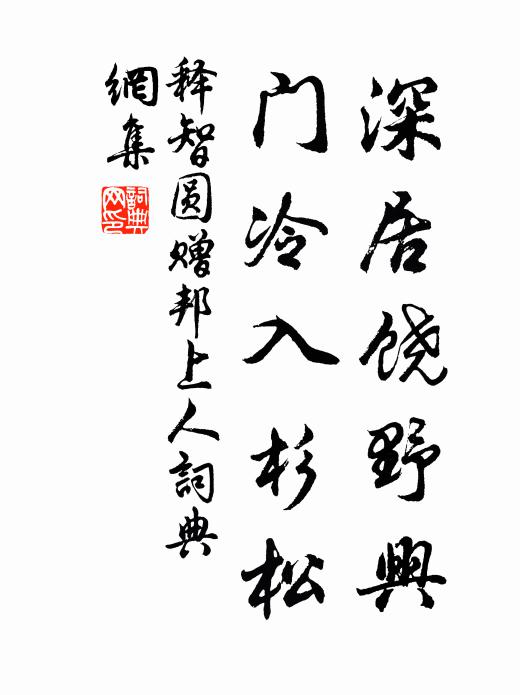 深居饶野興
门冷入杉松
释智圆赠邦上人詞典
網集
詞典
网印